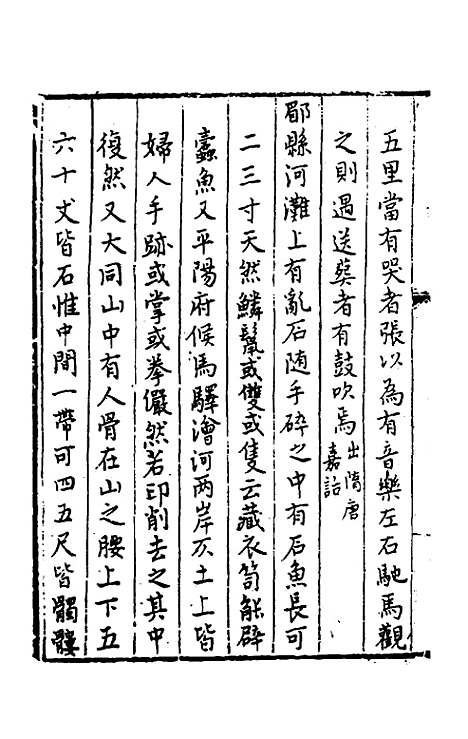 五里當有哭者張以為有音樂左右馳馬觀
之則遇送葬者有鼓吹焉出隋唐嘉話
郿縣河灘上有亂石随手碎之中有石魚長可
二三寸天然鱗鬣或雙或隻云藏衣笥能辟
蠹魚又平陽府候馬驛澮河两岸仄土上皆
婦人手跡或掌或拳儼然若印削去之其中
復然又大同山中有人骨在山之腰上下五
六十丈皆石惟中間一帶可四五尺皆髑髏